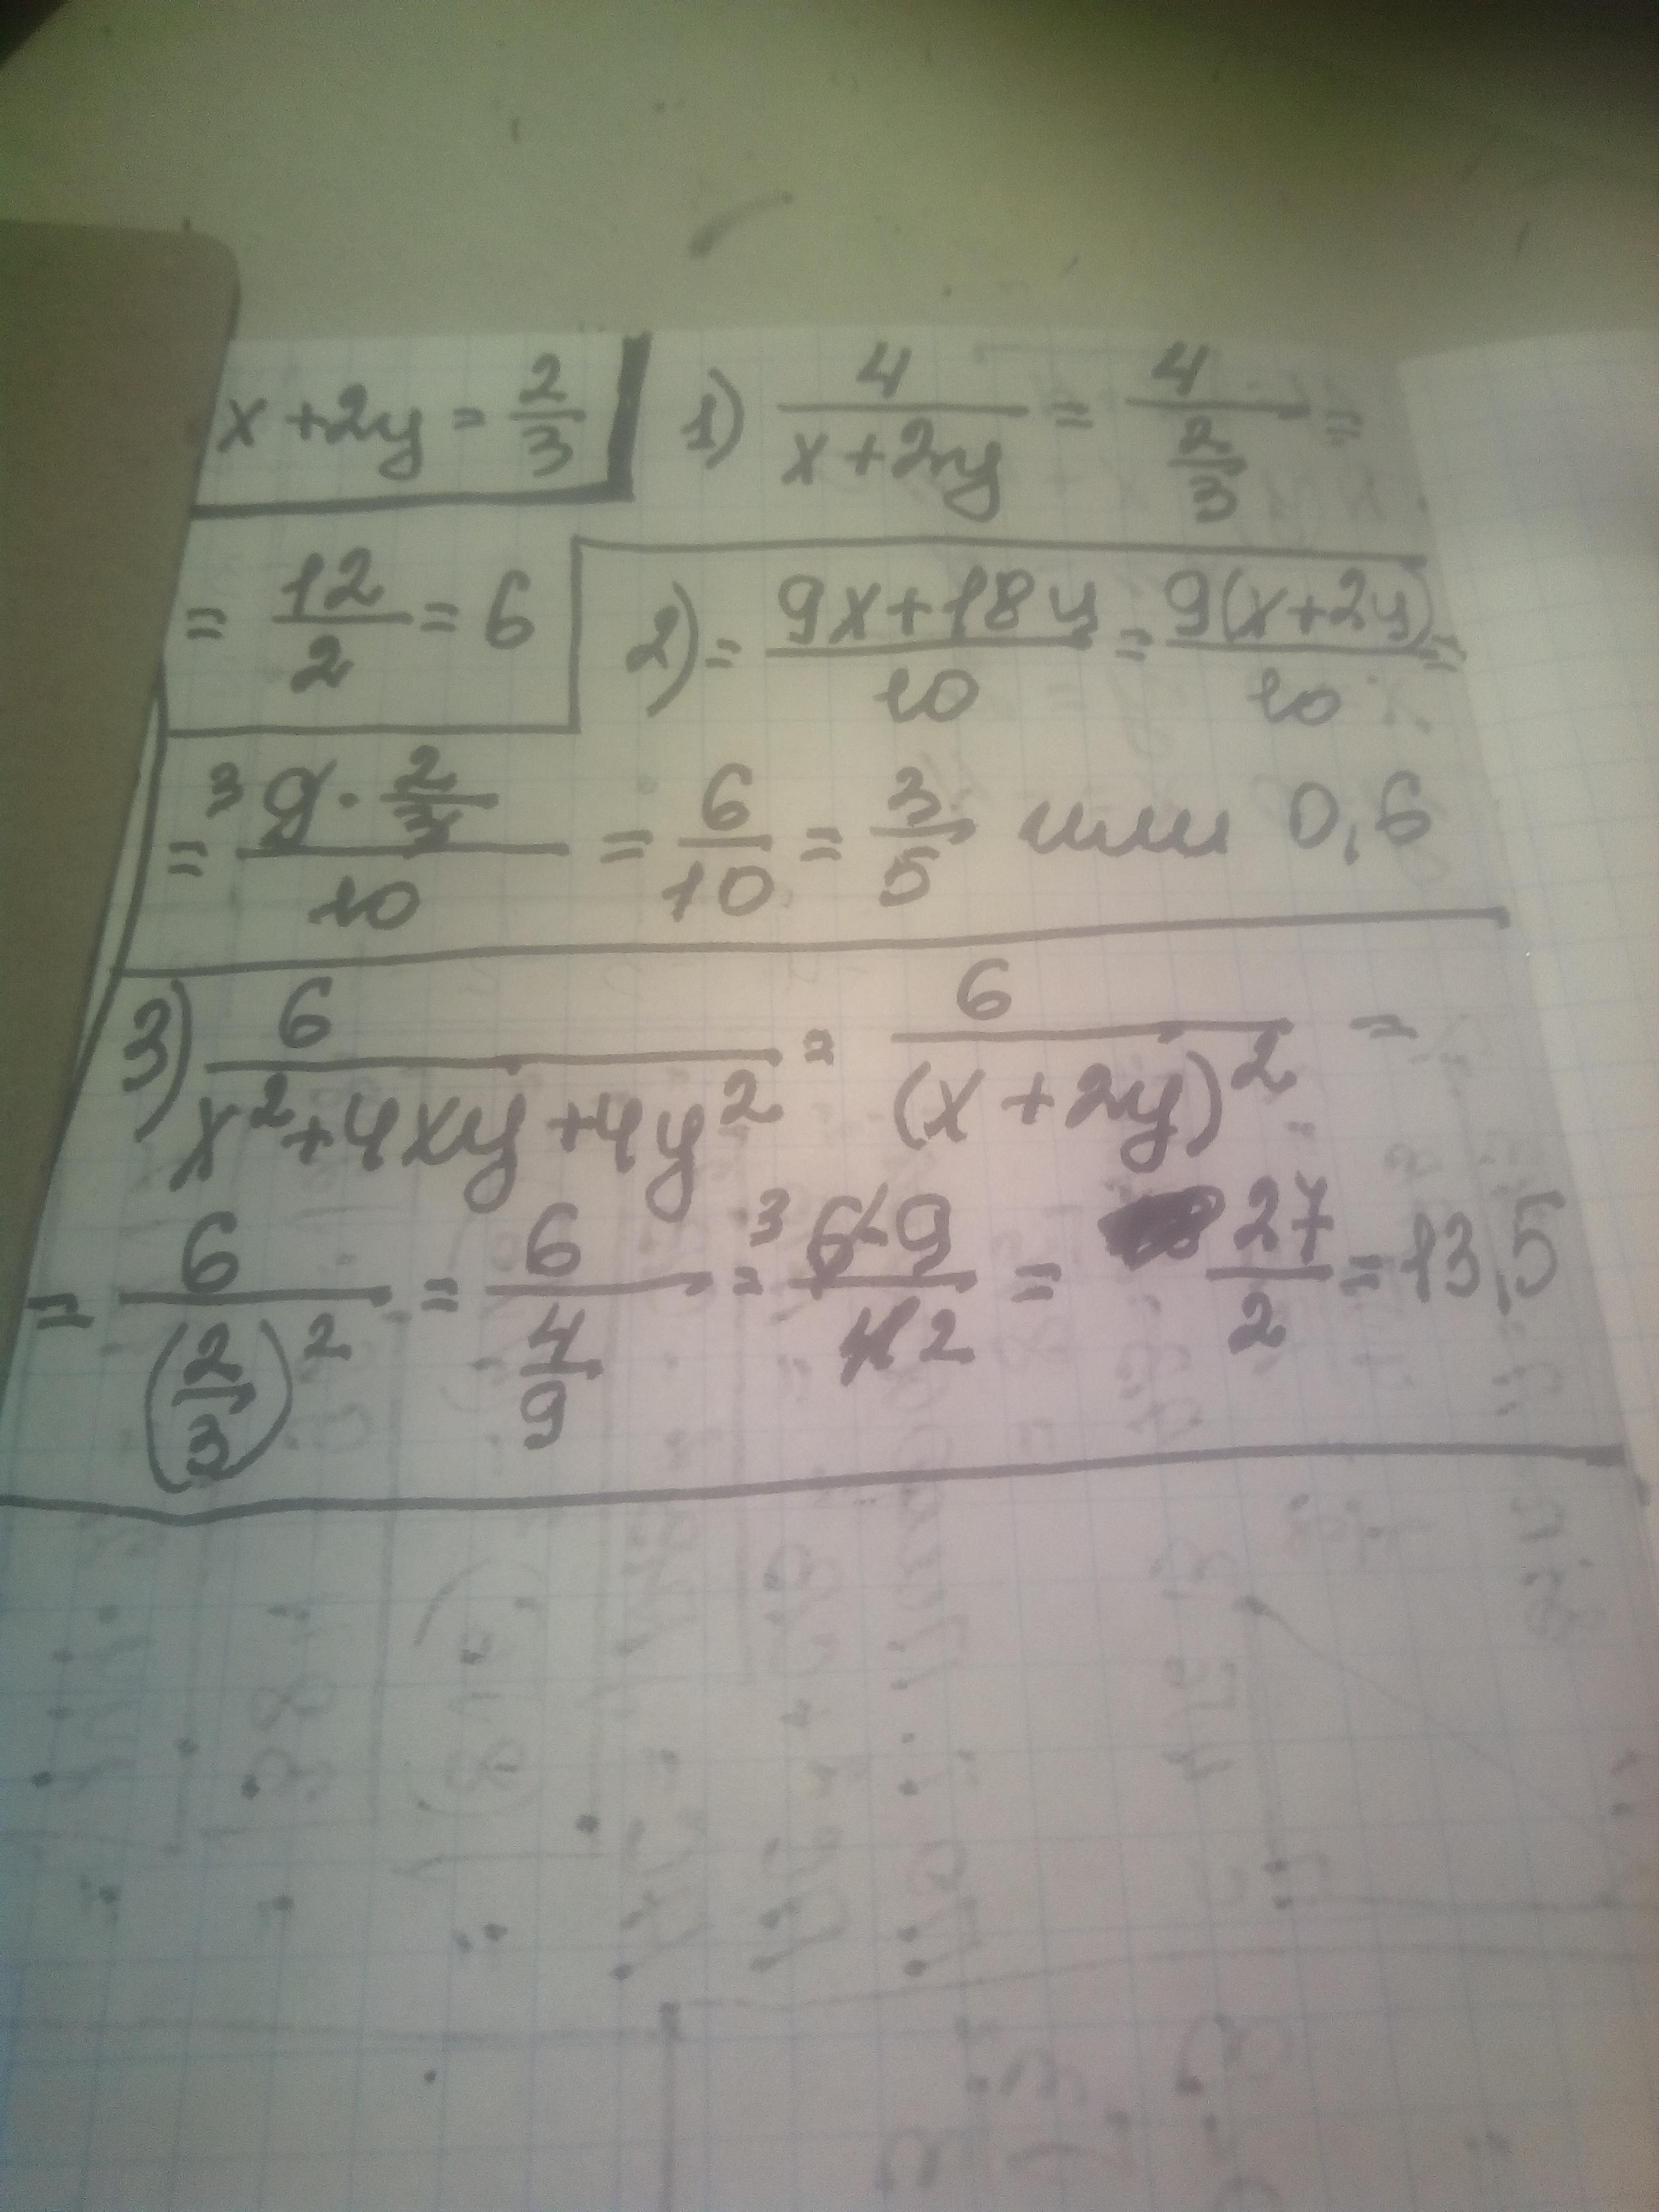 x + 2y = 2/3
1) 4/(x + 2y) = 4/(2/3) =
= 12/2 = 6
2) = (9x + 18y)/10 = 9(x + 2y)/10 =
= (³9 · 2/3)/10 = 6/10 = 3/5 или 0,6
3) 6/(x² + 4xy + 4y²) = 6/(x + 2y)² =
= 6/(2/3)² = 6/(4/9) = ³6·9/4 2 = 27/2 = 13,5